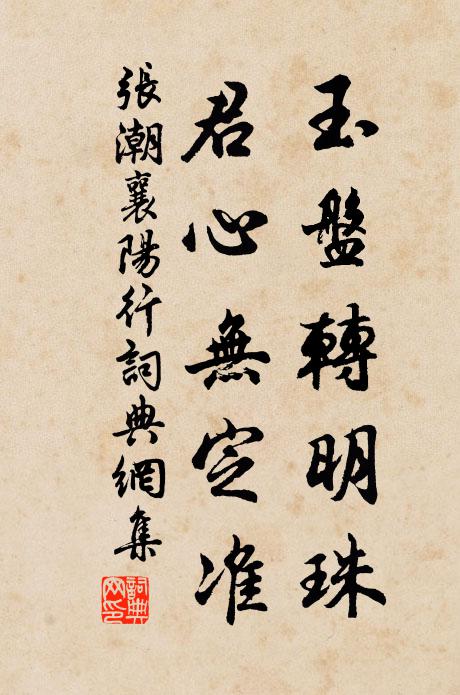 玉盤轉明珠
君心無定准
張潮襄陽行詞典網集
詞典
网印